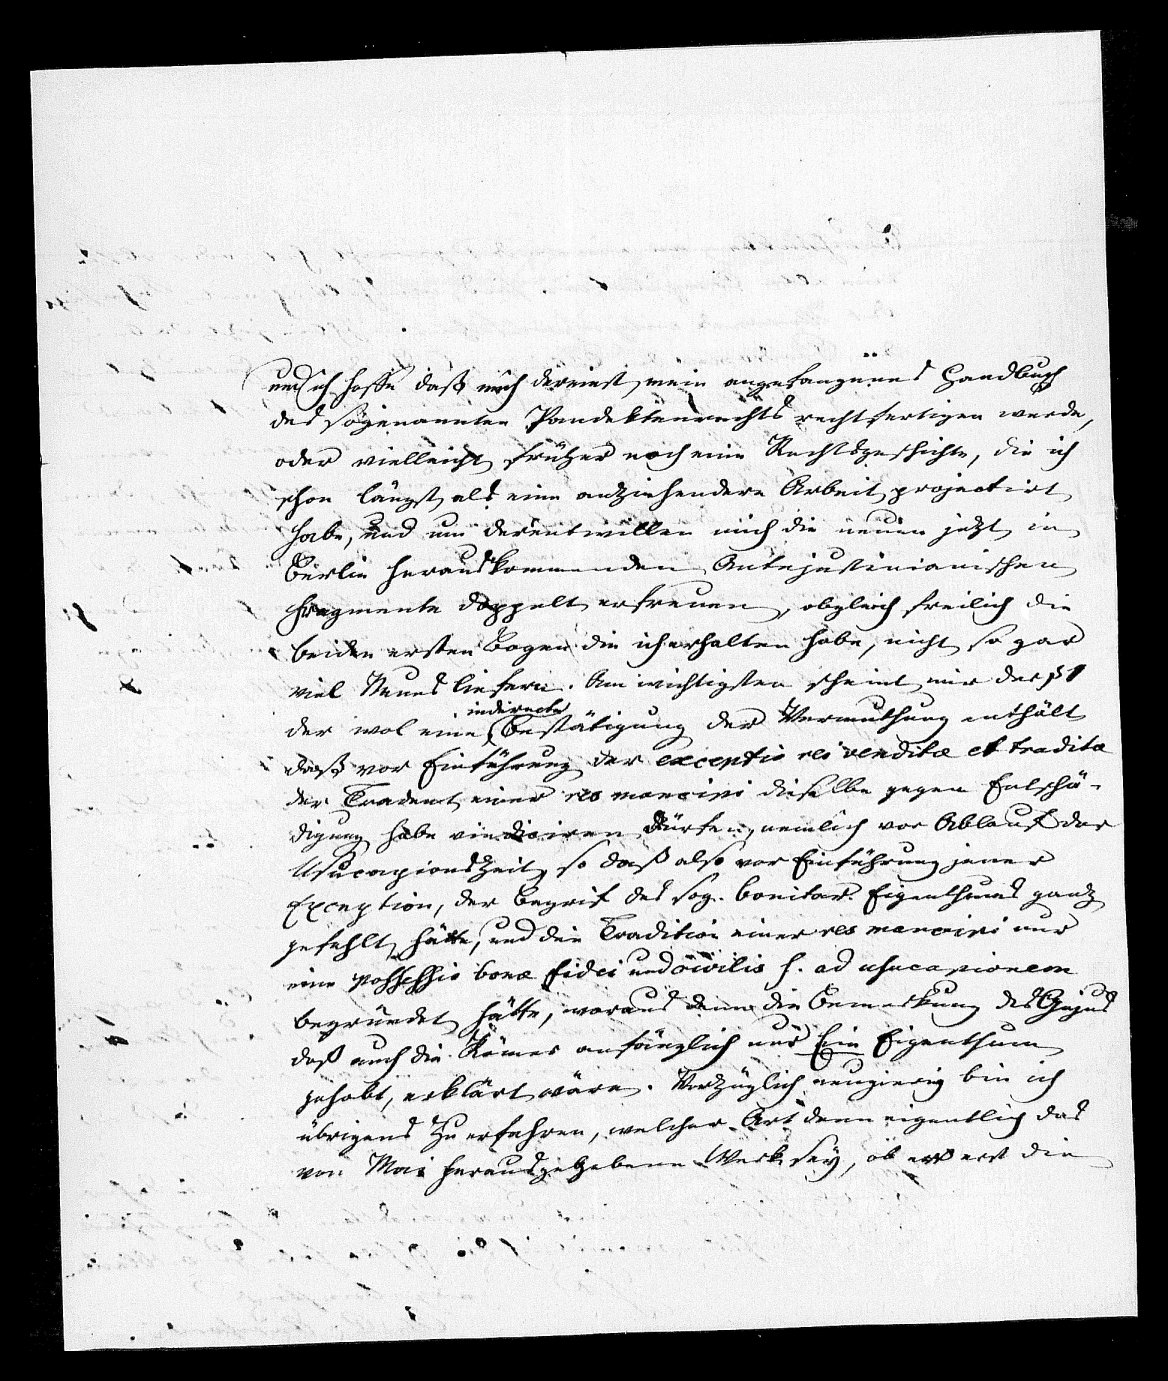 und ich hoffe daß mich dereinst mein angefangenes Handbuch
des sogenannten Pandektenrechts rechtfertigen werde,
oder vielleicht früher noch eine Rechtsgeschichte, die ich
schon längst als eine anziehendere Arbeit projectirt
habe, und um derentwillen mich die neuen jetzt in
Berlin herauskommenden Antejustinianischen
Fragmente doppelt erfreuen, obgleich freilich die
beiden ersten Bogen die ich erhalten habe, nicht so gar
viel Neues liefern. Am wichtigsten scheint mir der §1
der wol eine indirecte Bestätigung der Vermuthung enthält
daß vor Einführung der exceptio rei venditæ et traditæ
der Tradent einer res mancipi dieselbe gegen Entschä-
digung habe vindiciren dürfen, nemlich vor Ablauf der
Usucapionszeit, so daß also vor Einführung jener
Exception, der Begrif des sog. bonitar. Eigenthums ganz
gefehlt hätte, und die Tradition einer res mancipi nur
eine possessio bonæ fidei und civilis s. ad usucapionem
begründet hätte, woraus denn die Bemerkung des Gajus
daß auch die Römer anfänglich nur Ein Eigenthum
gehabt, erklärt wäre. Vorzüglich neugierig bin ich
übrigens zu erfahren, welcher Art denn eigentlich das
von Mai herausgegebene Werk sey, ob es erst die